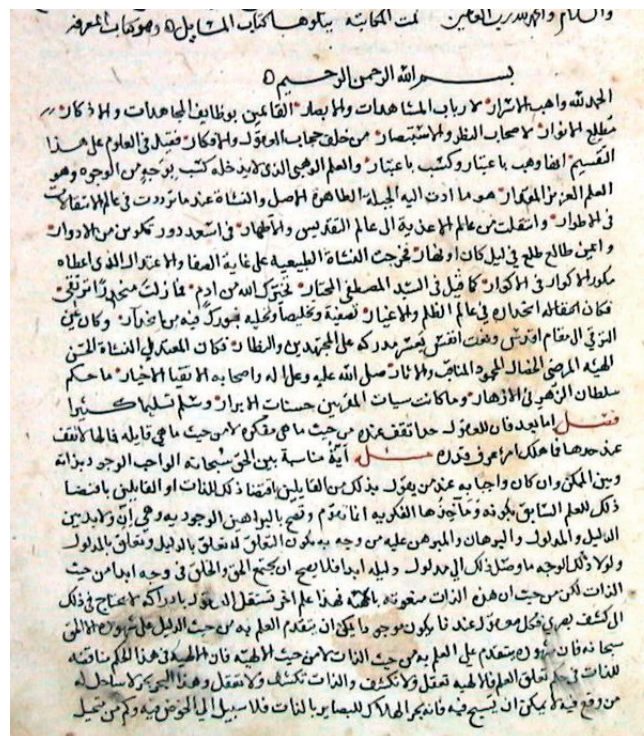 والسلام والحمد لله رب العالمين تمت الكتابة يتلوها كتاب المسايل وهو كتاب المعرفة
بسم الله الرحمن الرحيم
الحمد لله واهب الاسرار لارباب المشاهدات والابصار القائمين بوظايف المجاهدات والاذكار
مطلع الانوار لاصحاب النظر والاستبصار من خلف حجاب العقول والافكار فقيل في العلوم على هذا
التقسيم انها وهب باعتبار وكسب باعتبار والعلم الوهبي الذي لا يدخله كسب بوجه من الوجوه وهو
العلم العزيز المقدار هو ما ادت اليه الجبلة الطاهرة الاصل والنشاة عندما ترددت في عالم الانتقالات
في الاطوار وانتقلت من عالم الاغذية الى عالم التقديس والاطهار في اسعد دور تكون من الادوار
وايمن طالع طلع في ليل كان او نهار فخرجت النشاة الطبيعية على غاية الصفا والاعتدال الذي اعطاه
مكور الاكوار في الاكوار كما قيل في السيد المصطفى المختار تخيرك الله من ادم فما زلت منحدرا ترتقي
فكان انتقاله انحداره في عالم الظلم والاغيار تصفية وتخليصا وتحليه فبورك فيه من انحدار وكان عين
الترقي الى مقام اقدس ونعت انفس يعسر مدركه على المجتهدين والنظار فكان المعتدل النشاة الحسن
الهيئه المرضي الخصال المحمود المناقب والاثار صلى الله عليه وعلى اله واصحابه الاتقيا الاخيار ما حكم
سلطان الزهر في الازهار وما كانت سيات المقربين حسنات الابرار وسلم تسليما كثيرا
فصل اما بعد فان للعقول حدا تقف عنده من حيث ما هي مفكره لا من حيث ما هي قابله فما لها لا تقف
عند حدها فما هلك امرا عرف قدره مسئله اية مناسبة بين الحق سبحانه الواجب الوجود بذاته
وبين الممكن وان كان واجبا به عند من يقول بذلك من القايلين باقتضا ذلك للذات او القايلين باقتضا
ذلك للعلم السابق بكونه وماخذها الفكريه انما تقوم وتصح بالبراهين الوجوديه وهي ان ولا بد بين
الدليل والمدلول والبرهان والمبرهن عليه من وجه به يكون التعلق له تعلق بالدليل وتعلق بالمدلول
ولولا ذلك الوجه ما وصل ذلك الى مدلول دليله ابدا فلا يصح ان يجتمع الحق والخلق في وجه ابدا من حيث
الذات لكن من حيث ان هذه الذات منعوته بالالهية فهذا علم اخر تستقل العقول بادراكه لا يحتاج في ذلك
الى كشف بصري فكل معقول عندنا يكون موجودا يمكن ان يتقدم العلم به من حيث الدليل على شهوده الا الحق
سبحانه فان شهوده يتقدم على العلم به من حيث الذات لا من حيث الالهيه فان الالهيه في هذا الحكم مناقضه
للذات في حكم تعلق العلم فالالهيه تعقل ولا تكشف والذات تكشف ولا تعقل وهذا البحر بحر لا ساحل له
من وقع فيه لا يمكن ان يسبح فيه فانه بحر الهلاك للبصاير بالذات فلا سبيل الى الخوض فيه وكم من متخيل